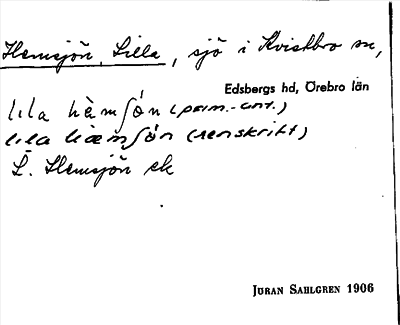 Hemsjön, Lilla, sjö i Kvistbro sn,
Edsbergs hd, Örebro län
lila hèmʃón (prim.-ant.)
lila hæmʃón (renskrift)
L. Hemsjön ek
JÖRAN SAHLGREN 1906